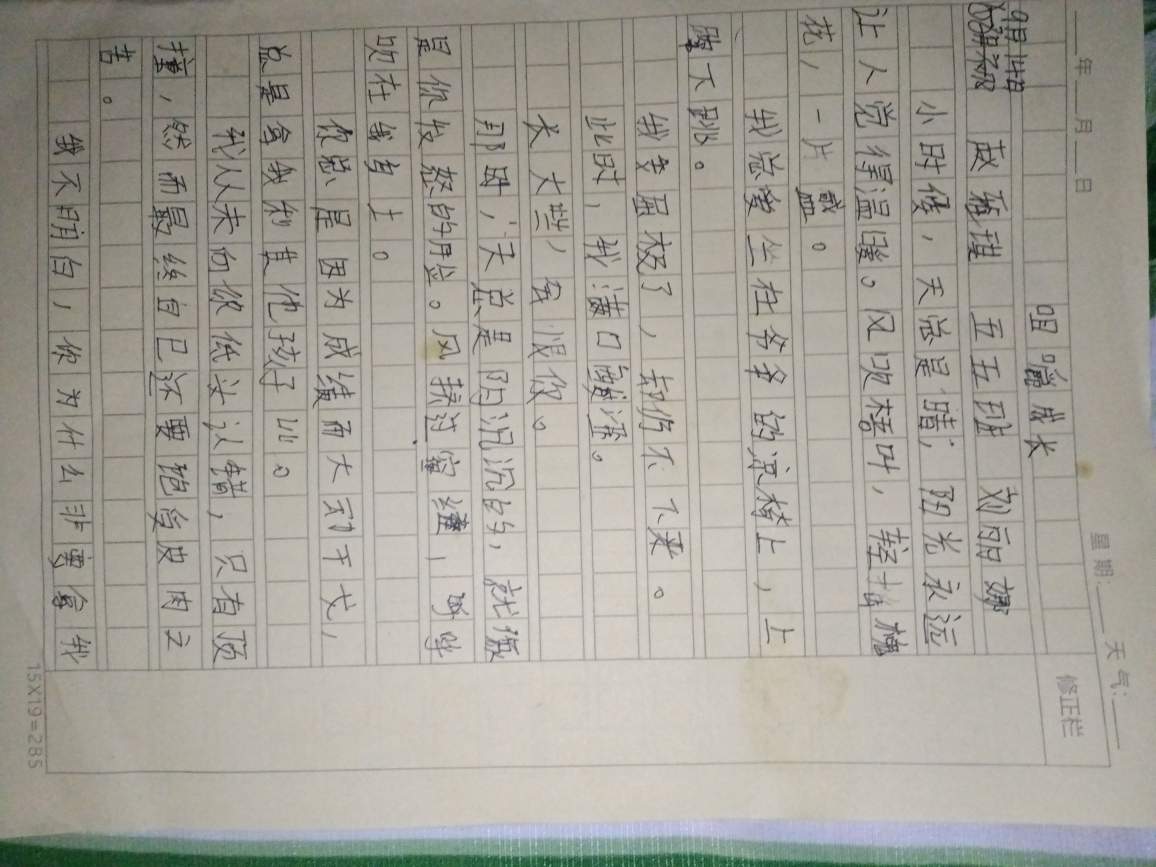 年 月 日 星期: 天气:
修正栏
咀嚼成长
赵雅琪 五五班 刘丽娜
小时候，天总是晴，阳光永远
让人觉得温暖。风吹梧叶，轻拈槐
花，一片盛。
我总爱坐在爷爷的凉椅上，上
蹿下跳。
我委屈极了，却仍不下来。
此时，我满口酸涩。
长大些，我恨你。
那时，天总是阴沉沉的，就像
是你发怒的脸。风挤过窗缝，呼呼
吹在我身上。
你总是因为成绩而大动干戈，
总是拿我和其他孩子比。
我从未向你低头认错，只有顶
撞，然而最终自己还要饱受皮肉之
苦。
我不明白，你为什么非要拿我
15X19=285